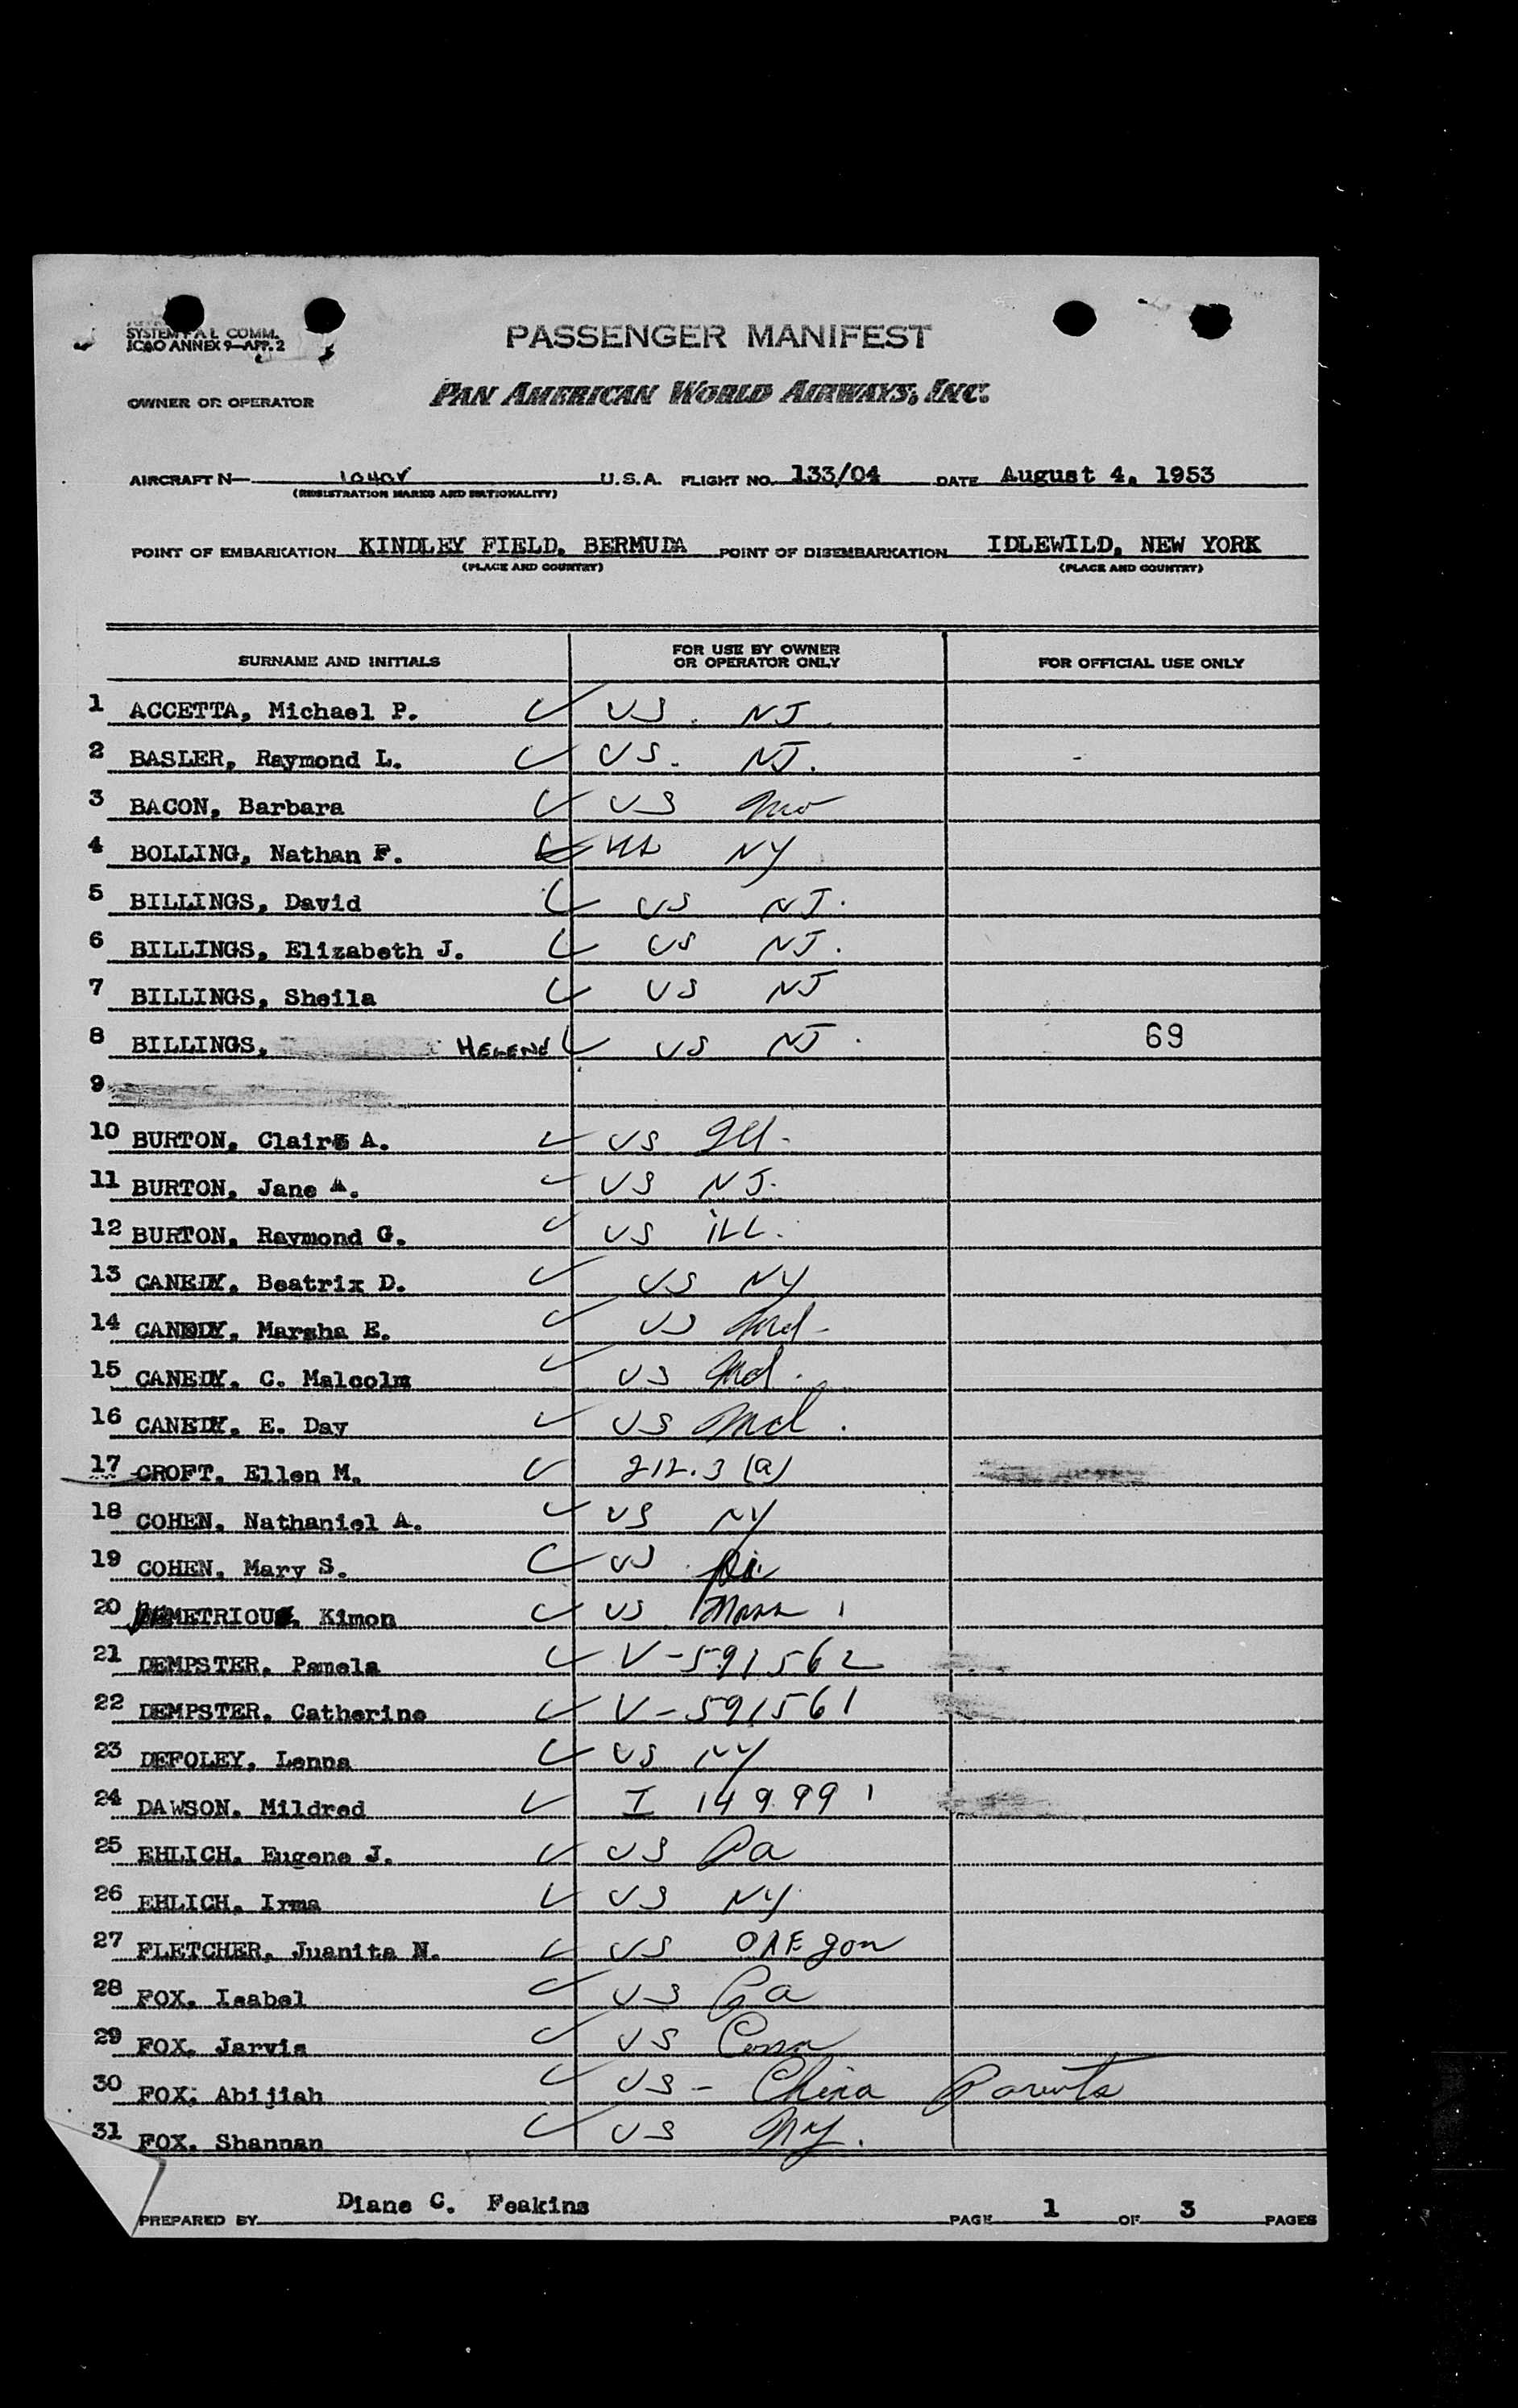 SYSTEM F.A.L. COMM.
ICAO ANNEX 9—APP. 2
PASSENGER MANIFEST
OWNER OR OPERATOR PAN AMERICAN WORLD AIRWAYS, INC.
AIRCRAFT N— U.S.A. FLIGHT NO. 133/04 DATE August 4, 1953
(REGISTRATION MARKS AND NATIONALITY)
POINT OF EMBARKATION KINDLEY FIELD, BERMUDA POINT OF DISEMBARKATION IDLEWILD, NEW YORK
(PLACE AND COUNTRY) (PLACE AND COUNTRY)
SURNAME AND INITIALS FOR USE BY OWNER OR OPERATOR ONLY FOR OFFICIAL USE ONLY
1 ACCETTA, Michael P. US. NJ.
2 BASLER, Raymond L. US. NJ.
3 BACON, Barbara US Mo
4 BOLLING, Nathan F. US NY
5 BILLINGS, David US NJ.
6 BILLINGS, Elizabeth J. US NJ.
7 BILLINGS, Sheila US NJ
8 BILLINGS, HELENE US NJ. 69
9
10 BURTON, Claire A. US Ill.
11 BURTON, Jane A. US NJ.
12 BURTON, Raymond G. US ILL.
13 CANEDY, Beatrix D. US NY
14 CANEDY, Marsha E. US Md.
15 CANEDY, C. Malcolm US Md.
16 CANEDY, E. Day US Md.
17 CROFT, Ellen M. 212.3 (a)
18 COHEN, Nathaniel A. US NY
19 COHEN, Mary S. US
20 METRIOU, Kimon US Mass
21 DEMPSTER, Pamela V-591562
22 DEMPSTER, Catherine V-591561
23 DEFOLEY, Lenna US NY
24 DAWSON, Mildred I 149991
25 EHLICH, Eugene J. US Pa
26 EHLICH, Irma US NY.
27 FLETCHER, Juanita N. US OREgon
28 FOX, Isabel US
29 FOX, Jarvis US Conn
30 FOX, Abijiah US - China Parents
31 FOX, Shannan US NY.
PREPARED BY Diane C. Feakins PAGE 1 OF 3 PAGES